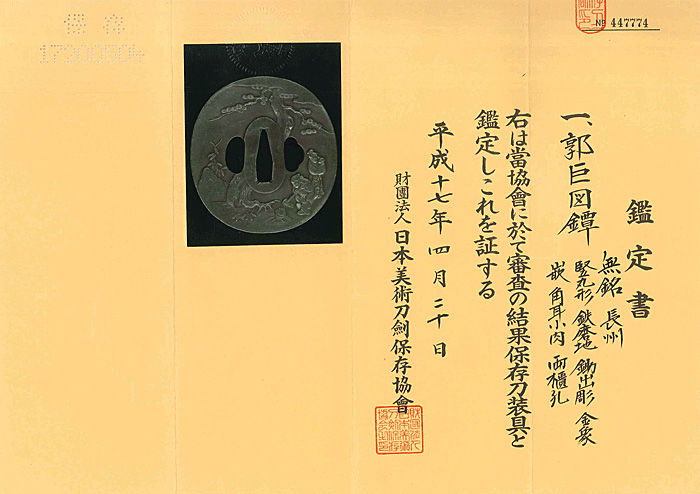 № 447774
鑑定書
一、郭巨図鐔
無銘 長州
竪丸形 鉄磨地 鋤出彫 金象
嵌 角耳小肉 両櫃孔
右は當協會に於て審査の結果保存刀装具と
鑑定しこれを証する
平成十七年四月二十日
財團法人 日本美術刀劍保存協會
保存